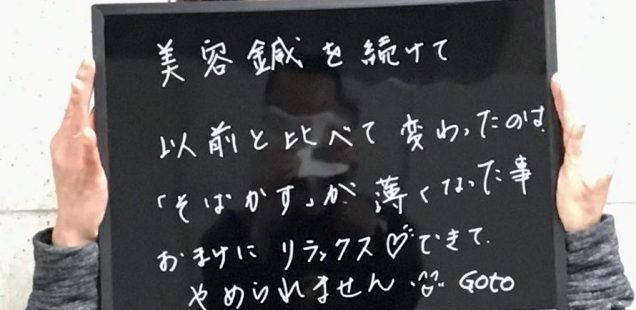 美容鍼を続けて
以前と比べて変わったのは、
「そばかす」が薄くなった事
おまけにリラックス♡できて、
やめられません Goto